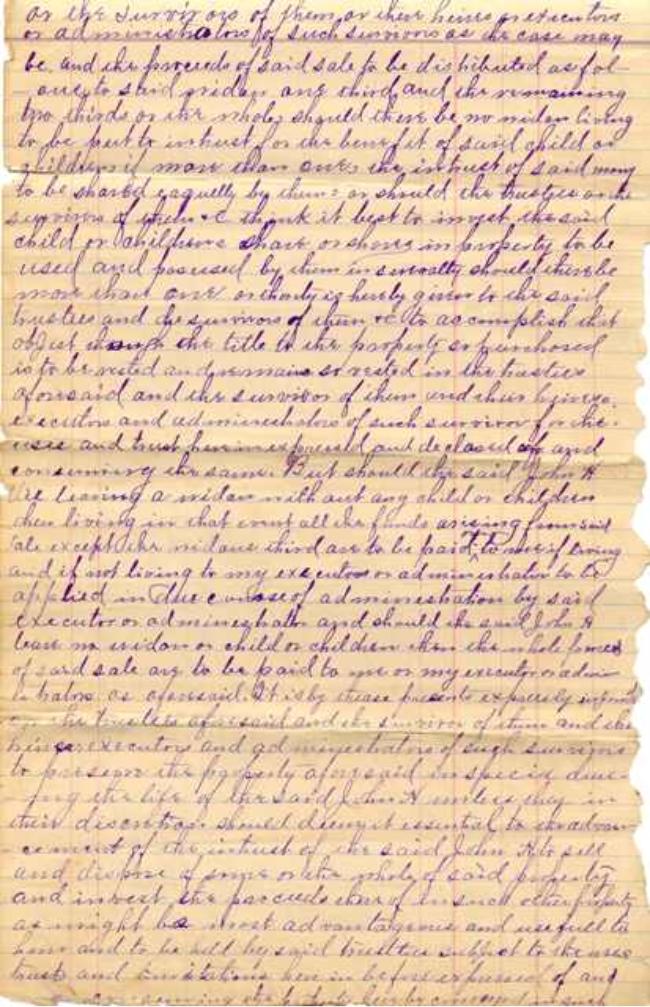 or the survivors of them or their heires or executors
or administrators of such survivors as the case may
be. and the proceeds of said sale to be distributed as fol-
to said widow one third and the remaining
two thirds or the whole should there be no widow living
to be put to intrust for the benefit of said child or
children if more than one, the intrust of said mony
to be shared equelly by them: or should the trustees or the
survivors of them &c think it best to invest the said
child or childrens share or shares in property to be
used and possessed by them in severalty should there be
more than one authority is hereby given to the said
trustees and the survivors of them &c to accomplish that
object the title to the property so purchased
is to be vested and remain so vested in the trusties
aforesaid and the survivor of them and their heires
executors and administrators of such survivor for the
uses and trust herein expressed and declared of and
conserning the same. But should the said John H
die leaving a widow without any child or children
then living in that event all the funds arising from said
sale except the widows third are to be paid to me if living
and if not living to my executor or administrator to be
applied in due course of administration by said
executor or administrator and should the said John H
leave no widow or child or children then the whole
of said sale are to be paid to me or my executor or admin
istrators as aforesaid. It is by these presents expressly
the trustees aforesaid and the survivor of them and the
heires executors and administrators of such survivors
to the property aforesaid in specie dur-
ing the life of the said John H unless they in
their discretion should deem it essential to the advan-
cement of the intrust of the said John H to sell
and dispose of some or the whole of said property
and invest the proceeds thereof in such other property
as might be most advantageous and usefull to
him and to be held by said trustees subject to the uses
trusts and limitations herein before expressed of and
conserning the hereby conveyed